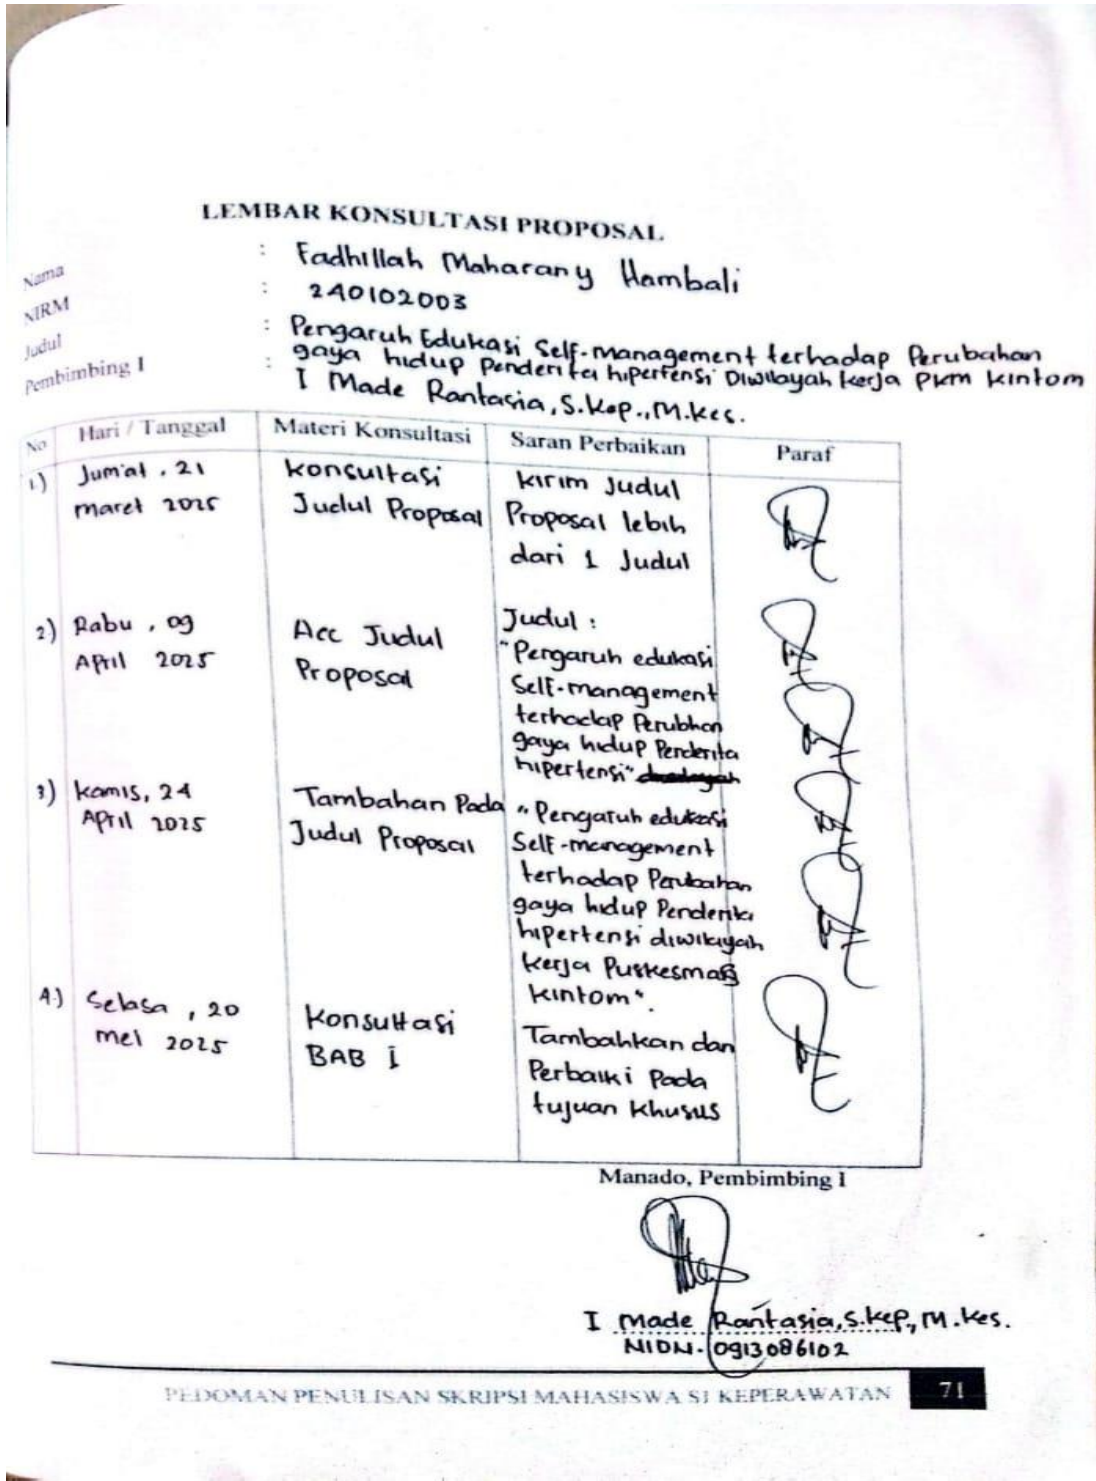 LEMBAR KONSULTASI PROPOSAL
Nama : Fadhillah Maharany Hambali
NIRM : 240102003
Judul : Pengaruh Edukasi Self-management terhadap Perubahan
gaya hidup Penderita hipertensi Diwilayah kerja PKM Kintom
Pembimbing I : I Made Rantasia, S.Kep., M.Kes.
No Hari / Tanggal Materi Konsultasi Saran Perbaikan Paraf
1.) Jum'at, 21 konsultasi kirim Judul
maret 2025 Judul Proposal Proposal lebih
dari 1 Judul
2) Rabu, 09 Acc Judul Judul :
April 2025 Proposal "Pengaruh edukasi
Self-management
terhadap Perubhan
gaya hidup Penderita
hipertensi"
3) kamis, 24 Tambahan Pada "Pengaruh edukasi
April 2025 Judul Proposal Self-management
terhadap Perubahan
gaya hidup Penderita
hipertensi diwilayah
kerja Puskesmas
kintom".
4.) Selasa, 20 Konsultasi Tambahkan dan
mei 2025 BAB I Perbaiki Pada
tujuan khusus
Manado, Pembimbing I
I Made Rantasia, S.Kep., M.Kes.
NIDN. 0913086102
PEDOMAN PENULISAN SKRIPSI MAHASISWA S1 KEPERAWATAN 71